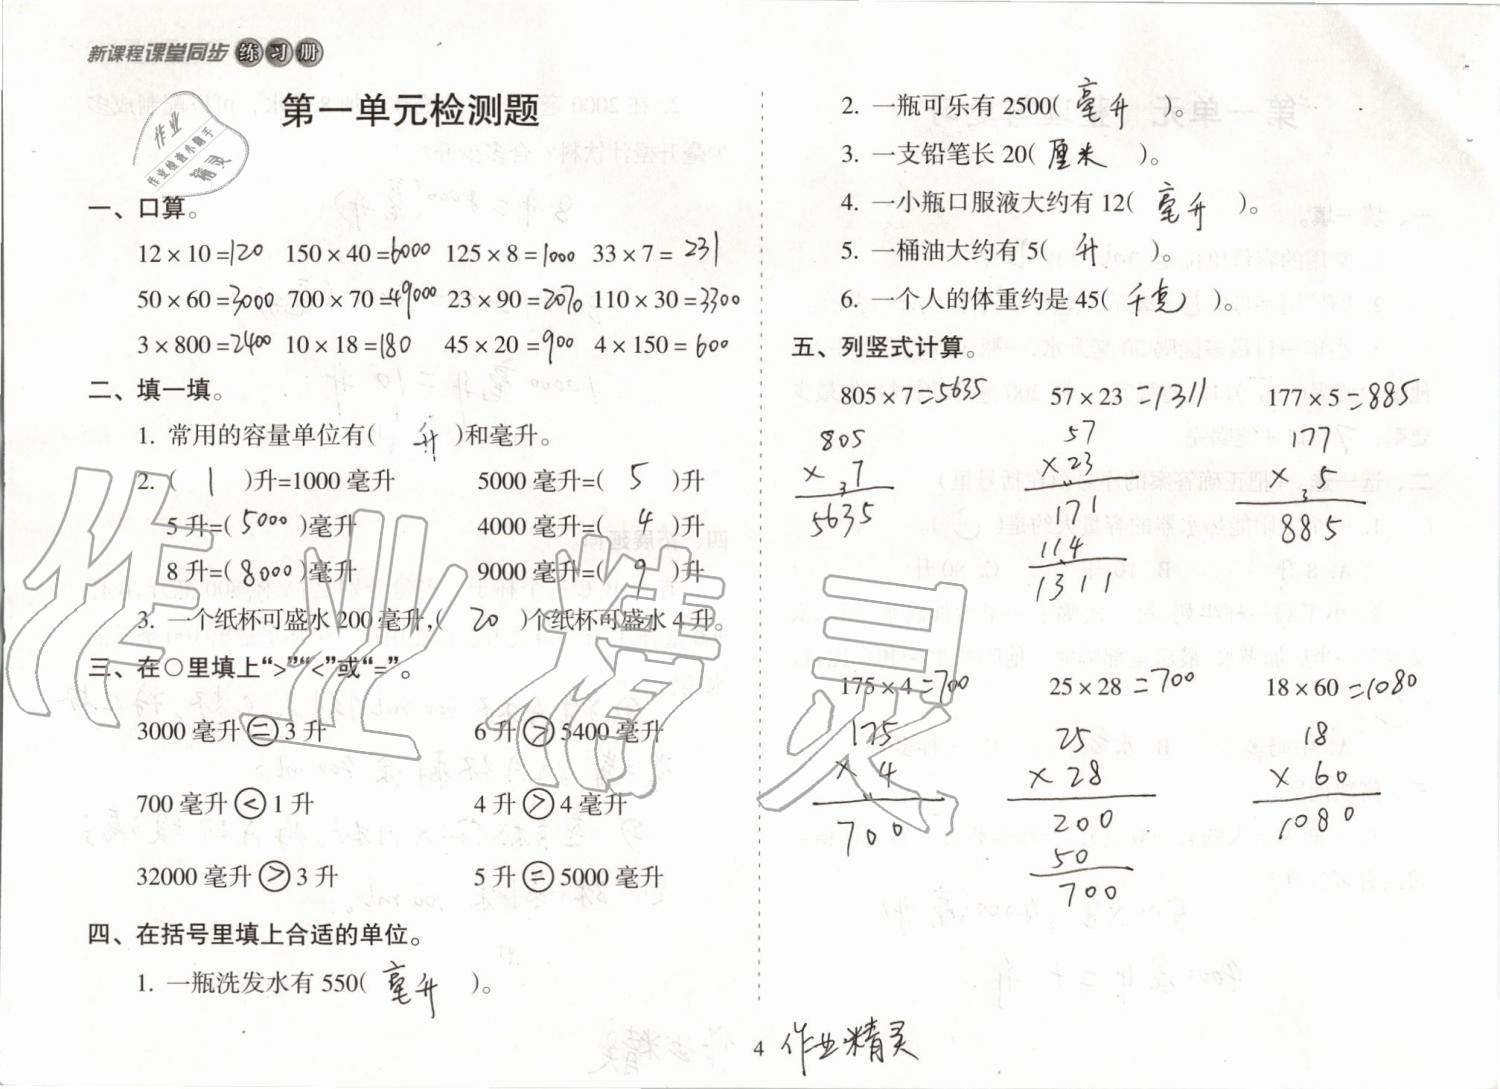 新课程课堂同步练习册
第一单元检测题
作业
作业检查小助手
精灵
一、口算。
12×10=120 150×40=6000 125×8=1000 33×7=231
50×60=3000 700×70=49000 23×90=2070 110×30=3300
3×800=2400 10×18=180 45×20=900 4×150=600
二、填一填。
1. 常用的容量单位有(升)和毫升。
2. (1)升=1000毫升 5000毫升=(5)升
5升=(5000)毫升 4000毫升=(4)升
8升=(8000)毫升 9000毫升=(9)升
3. 一个纸杯可盛水200毫升,(20)个纸杯可盛水4升。
三、在○里填上“>”“<”或“=”。
3000毫升=3升 6升>5400毫升
700毫升<1升 4升>4毫升
32000毫升>3升 5升=5000毫升
四、在括号里填上合适的单位。
1. 一瓶洗发水有550(毫升)。
2. 一瓶可乐有2500(毫升)。
3. 一支铅笔长20(厘米)。
4. 一小瓶口服液大约有12(毫升)。
5. 一桶油大约有5(升)。
6. 一个人的体重约是45(千克)。
五、列竖式计算。
805×7=5635 57×23=1311 177×5=885
805 57 177
×7 ×23 ×5
5635 171 885
114
1311
175×4=700 25×28=700 18×60=1080
175 25 18
×4 ×28 ×60
700 200 1080
50
700
4 作业精灵
作业精灵